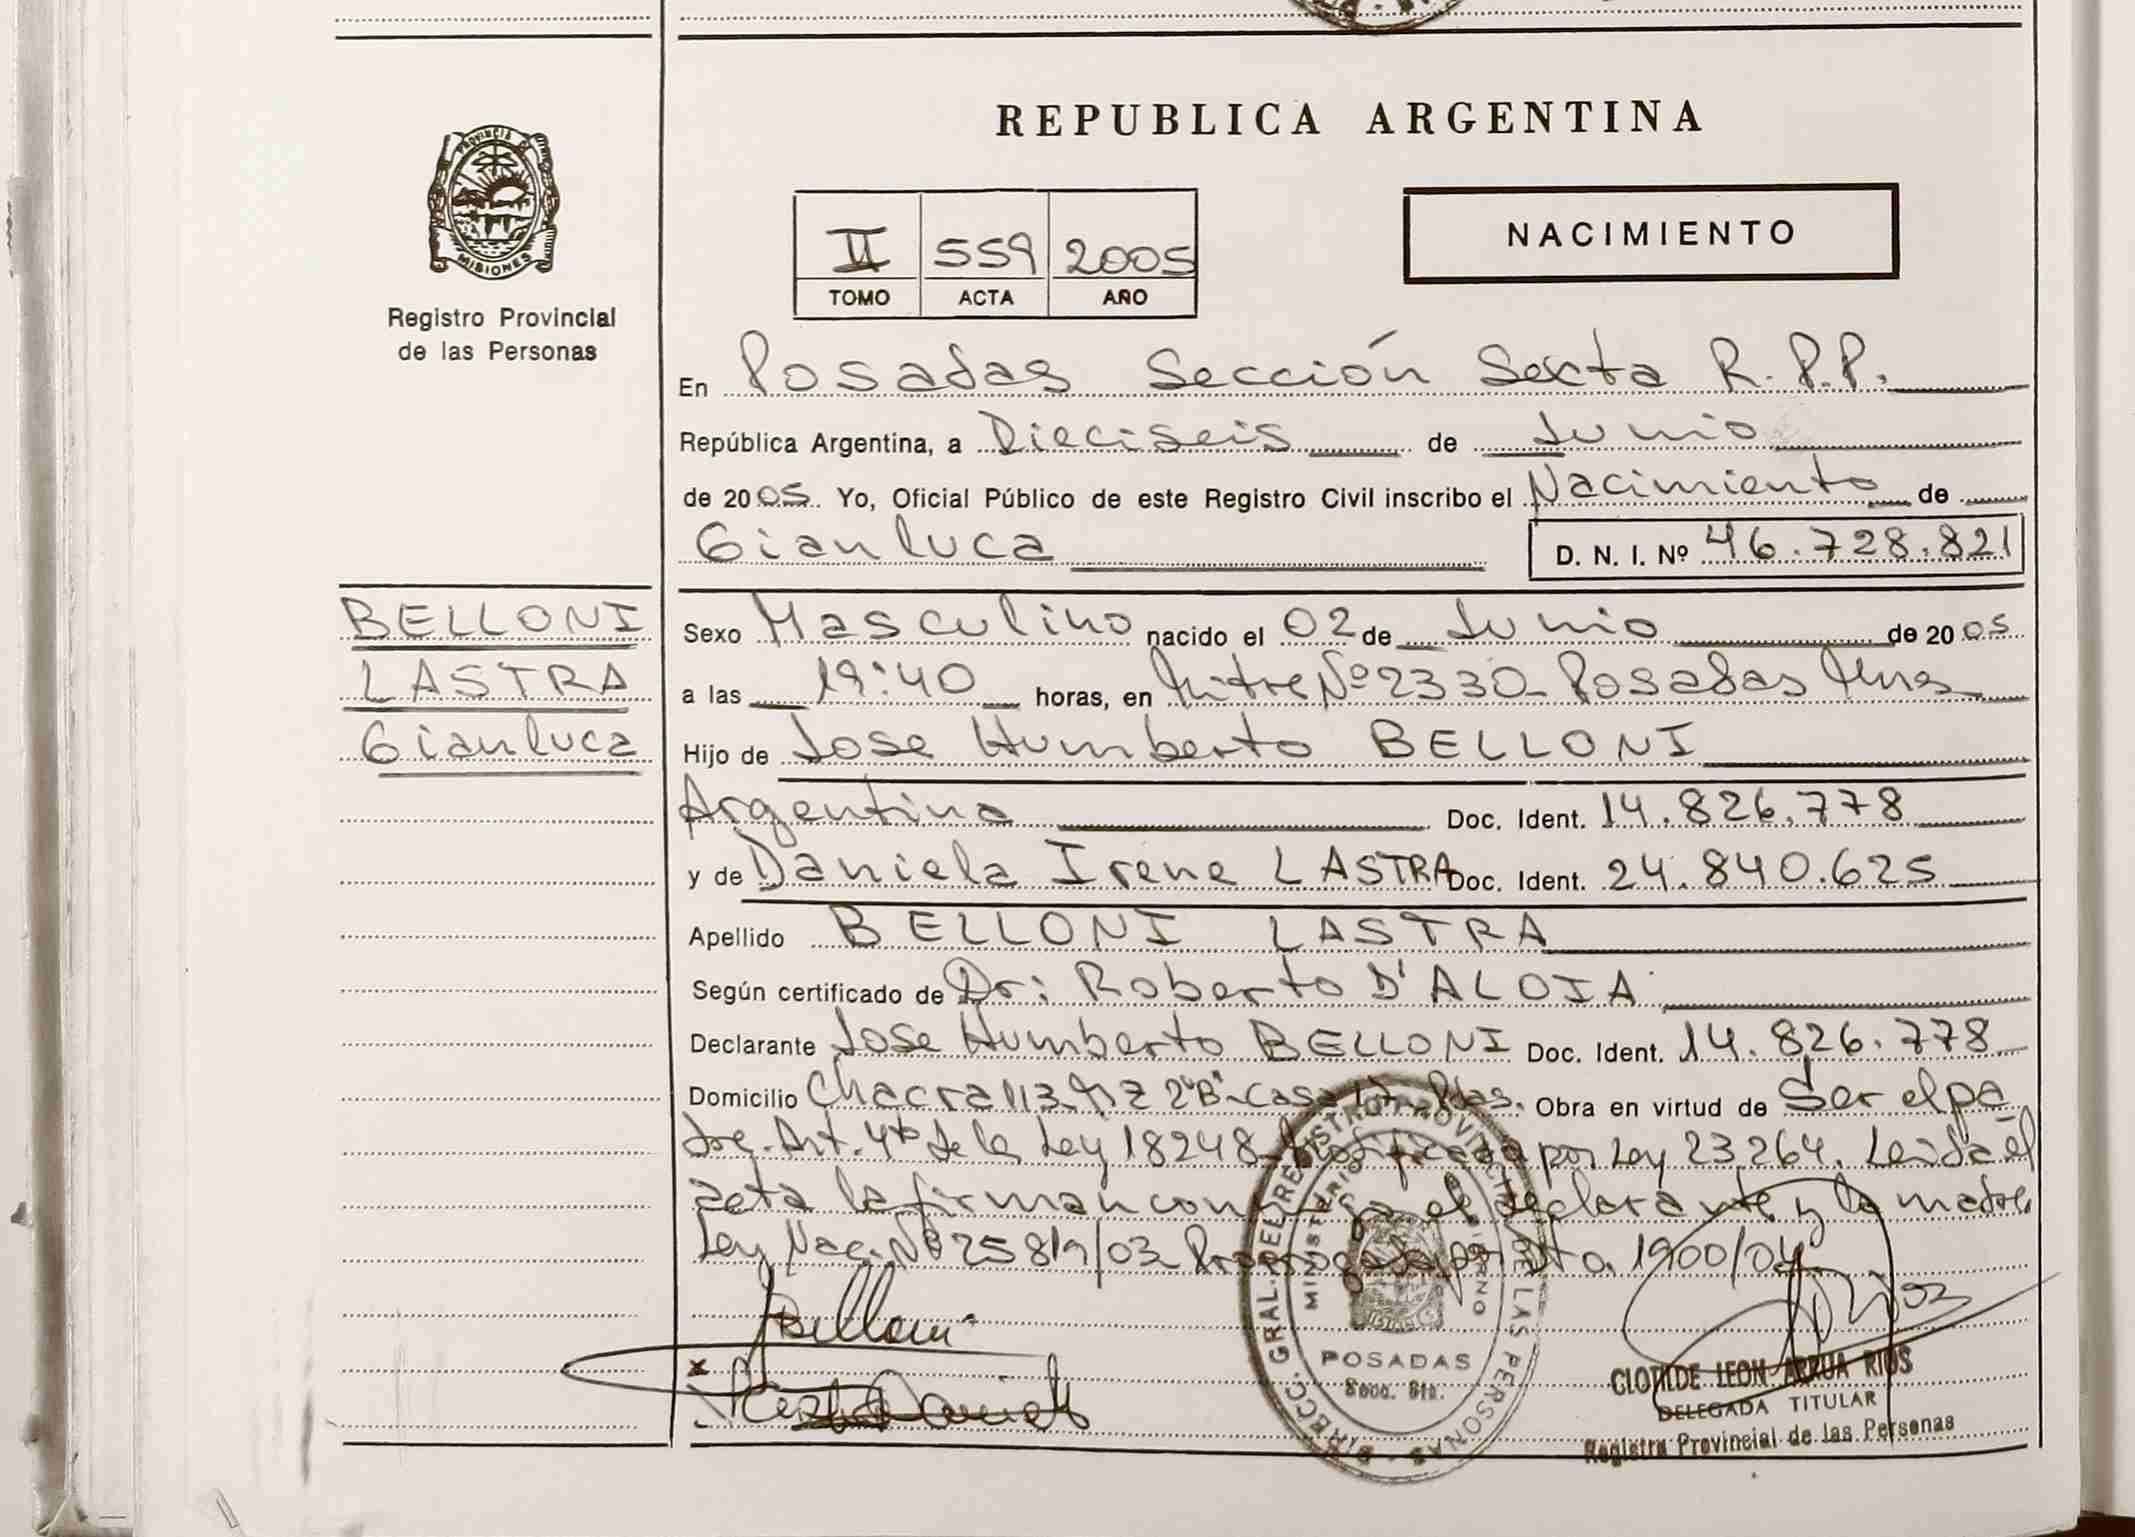 REPUBLICA ARGENTINA
PROVINCIA DE MISIONES
Registro Provincial
de las Personas
II 559 2005
TOMO ACTA AÑO
NACIMIENTO
En Posadas Sección Sexta R.P.P.
República Argentina, a Dieciseis de Junio
de 2005. Yo, Oficial Público de este Registro Civil inscribo el Nacimiento de
Gianluca D. N. I. Nº 46.728.821
BELLONI
LASTRA
Gianluca
Sexo Masculino nacido el 02 de Junio de 2005
a las 19:40 horas, en Mitre Nº 2330 Posadas Mnes
Hijo de Jose Humberto BELLONI
Argentino Doc. Ident. 14.826.778
y de Daniela Irene LASTRA Doc. Ident. 24.840.625
Apellido BELLONI LASTRA
Según certificado de Dr: Roberto D'ALOIA
Declarante Jose Humberto BELLONI Doc. Ident. 14.826.778
Domicilio Chacra 113 Mz 2"B" Casa 17 Pdas. Obra en virtud de Ser el pa
dre. Art. 4to de la Ley 18248 Modificada por Ley 23264. Leida el
acta la firman conmigo el declarante y la madre
Ley Nac. Nº 25819/03 Prorrogada por Dto. 1900/04
Belloni
x
DIRECC. GRAL. DEL REGISTRO PROVINCIAL DE LAS PERSONAS
MINISTERIO GOBIERNO
POSADAS
Secc. 6ta.
CLOTILDE LEON ARRUA RIOS
DELEGADA TITULAR
Registro Provincial de las Personas